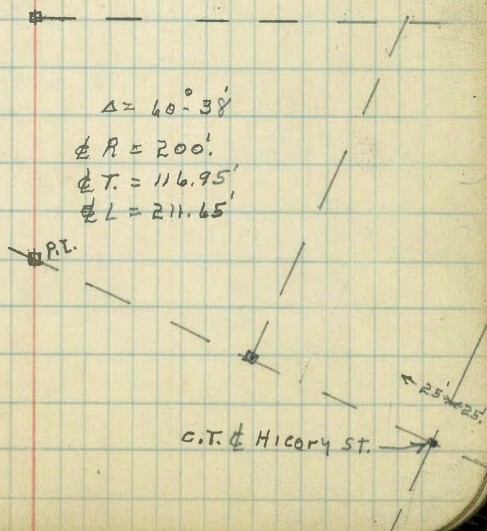 Δ = 60°-38'
℄ R = 200.'
℄ T. = 116.95'
℄ L = 211.65'
P.I.
25' 25'
C.T. ℄ Hicory St.